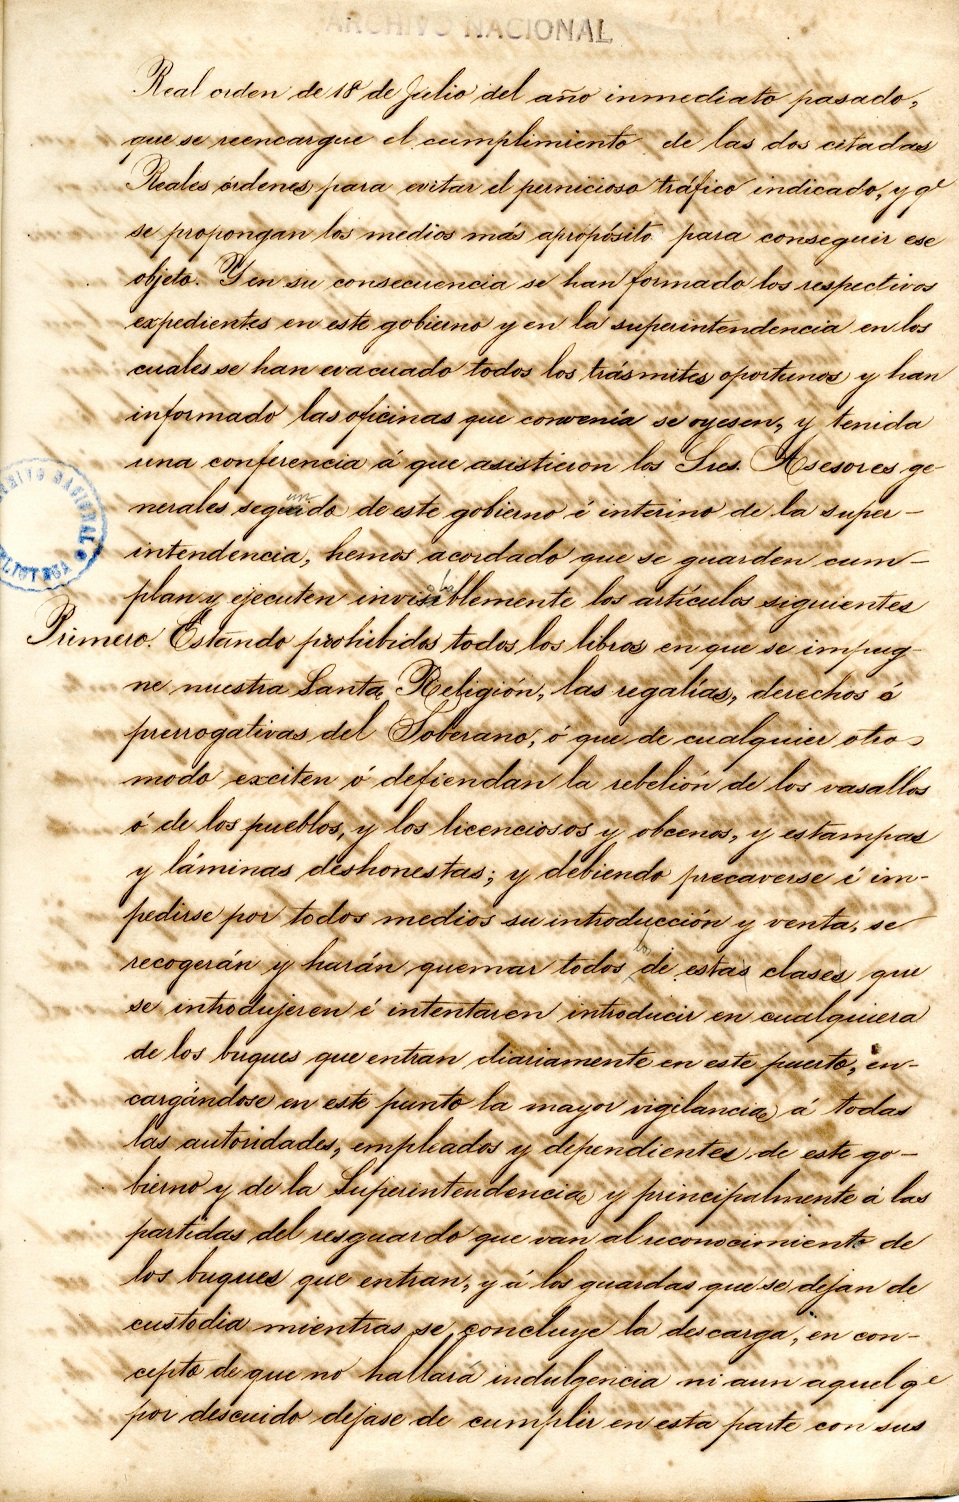 ARCHIVO NACIONAL
Real orden de 18 de Julio del año inmediato pasado,
que se reencargue el cumplimiento de las dos citadas
Reales órdenes para evitar el pernicioso tráfico indicado, y q.e
se propongan los medios más apropósito para conseguir ese
objeto. Y en su consecuencia se han formado los respectivos
expedientes en este gobierno y en la superintendencia en los
cuales se han evacuado todos los trásmites oportunos y han
informado las oficinas que convenía se oyesen, y tenida
una conferencia á que asistieron los Sres. Asesores ge-
nerales segundo de este gobierno é interino de la super-
intendencia, hemos acordado que se guarden cum-
plan y ejecuten inviolablemente los artículos siguientes
Primero. Estando prohibidos todos los libros en que se impug-
ne nuestra Santa Religión, las regalías, derechos ó
prerrogativas del Soberano, ó que de cualquier otro
modo exciten ó defiendan la rebelión de los vasallos
ó de los pueblos, y los licenciosos y obcenos, y estampas
y láminas deshonestas; y debiendo precaverse é im-
pedirse por todos medios su introducción y venta, se
recogerán y harán quemar todos los de estas clases que
se introdujeren é intentaren introducir en cualquiera
de los buques que entran diariamente en este puerto, en-
cargándose en este punto la mayor vigilancia á todas
las autoridades, empleados y dependientes de este go-
bierno y de la Superintendencia y principalmente á las
partidas del resguardo que van al reconocimiento de
los buques que entran, y á los guardas que se dejan de
custodia mientras se concluye la descarga, en con-
cepto de que no hallará indulgencia ni aun aquel q.e
por descuido dejase de cumplir en esta parte con sus